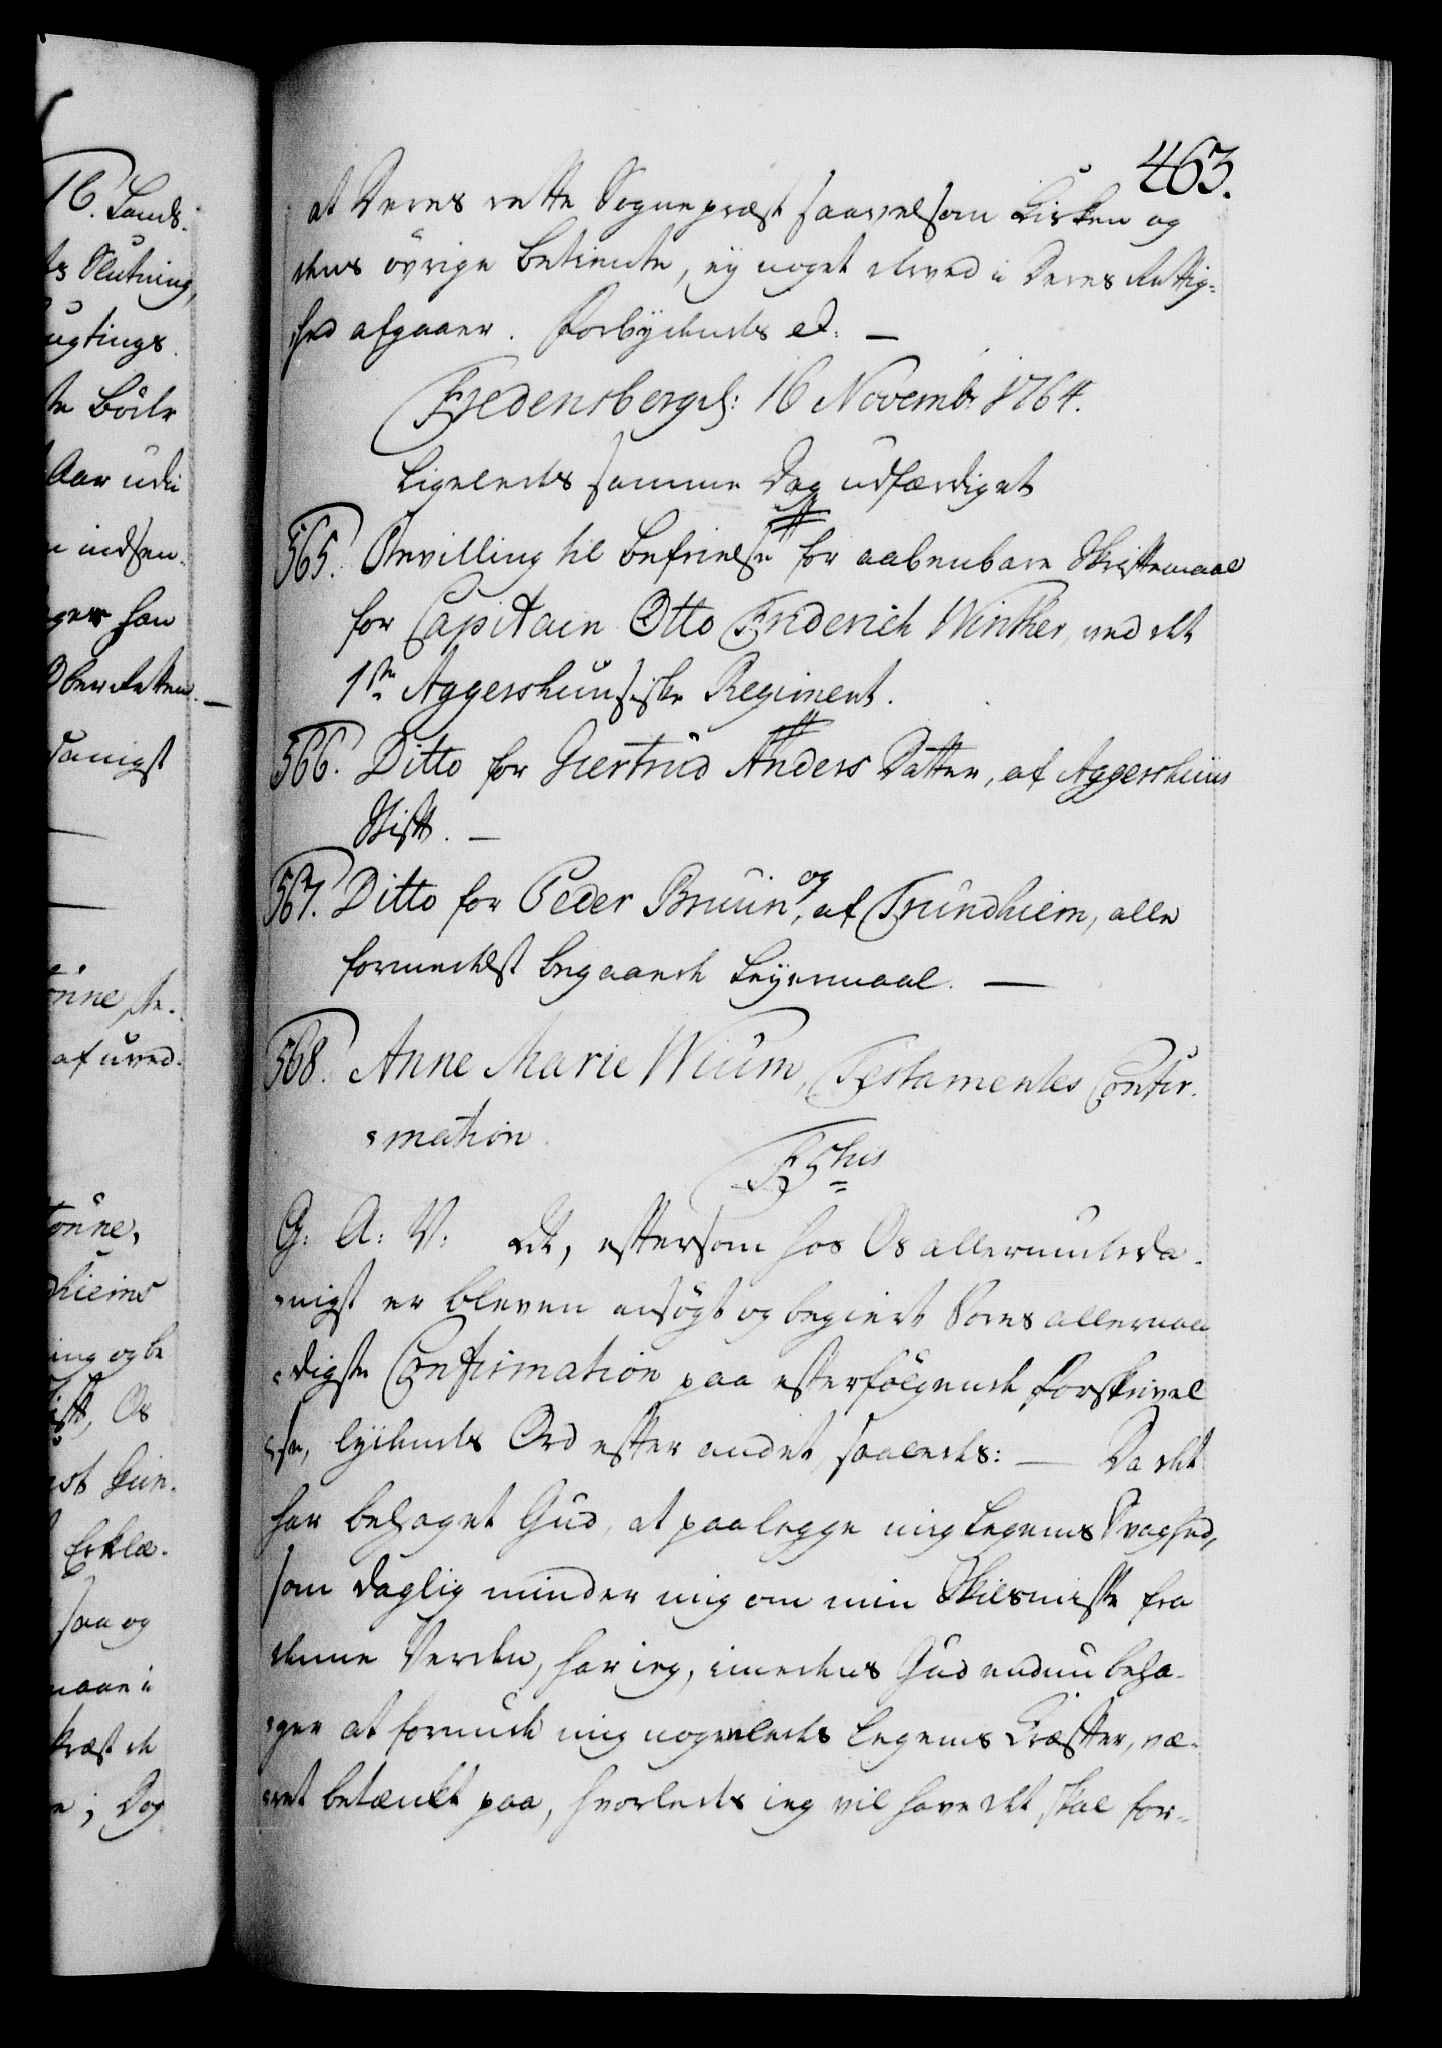 463.
at Deres rette Sognepræst saavelsom Kirken og
dens övrige betiente, ey noget derved i Deres Rettig-
hed afgaaer. Forbydendes et. —
Fredensberg d: 16 Novembr 1764.
Ligeledes samme Dag udfærdiget
565. Bevilling til befrielse for aabenbare Skriftemaal
for Capitain Otto Friderich Winther, ved det
1ste Aggershuusiske Regiment.
566. Ditto for Giertrud Anders Datter, af Aggershuus
Stift. —
567. Ditto for Peder Bruun, og af Trundhiem, alle
formedelst begaaede Leyermaal. —
568. Anne Marie Wium, Testamentes Confir-
mation.
F 5this
G: A: V: At, eftersom hos Os allerunderda-
nigst er bleven ansögt og begiert Vores allernaa
digste Confirmation paa efterfölgende forskrivel
se, lydendes Ord efter andet saaledes: — Da det
har behaget Gud, at paalegge mig Legems Svaghed,
som daglig minder mig om min Skilsmisse fra
denne Verden, har ieg, imedens Gud endnu beha-
ger at forunde mig nogenledes Legems Kræfter, væ-
ret betænkt paa, hvorledes ieg vil have det skal for-
16. Lands-
Slutning,
ugtings
te Böde
Aar uden
indsen-
ger han
OberRetten. —
danigst
önne, de-
af uved-
tönne,
dhiems
ing og be
ift, Os
Erklæ-
saa og
maae i
kræft de
e; Dog